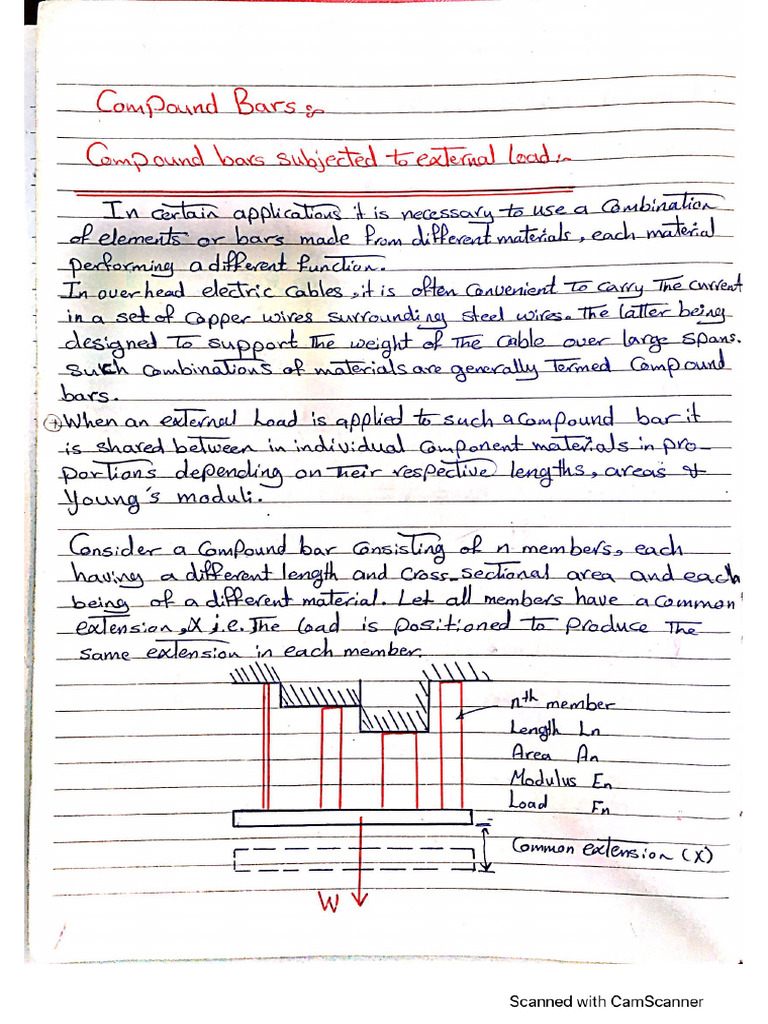 Compound Bars:-
Compound bars subjected to external load:-
In certain applications it is necessary to use a combination
of elements or bars made from different materials, each material
performing a different function.
In overhead electric cables, it is often convenient to carry the current
in a set of copper wires surrounding steel wires. the latter being
designed to support the weight of the cable over large spans.
such combinations of materials are generally termed compound
bars.
When an external load is applied to such a compound bar it
is shared between in individual component materials in pro-
portions depending on their respective lengths, areas &
Young's moduli.
Consider a compound bar consisting of n members, each
having a different length and cross-sectional area and each
being of a different material. Let all members have a common
extension, x i.e. The load is positioned to produce the
same extension in each member.
nth member
Length Ln
Area An
Modulus En
Load Fn
Common extension (x)
W
Scanned with CamScanner